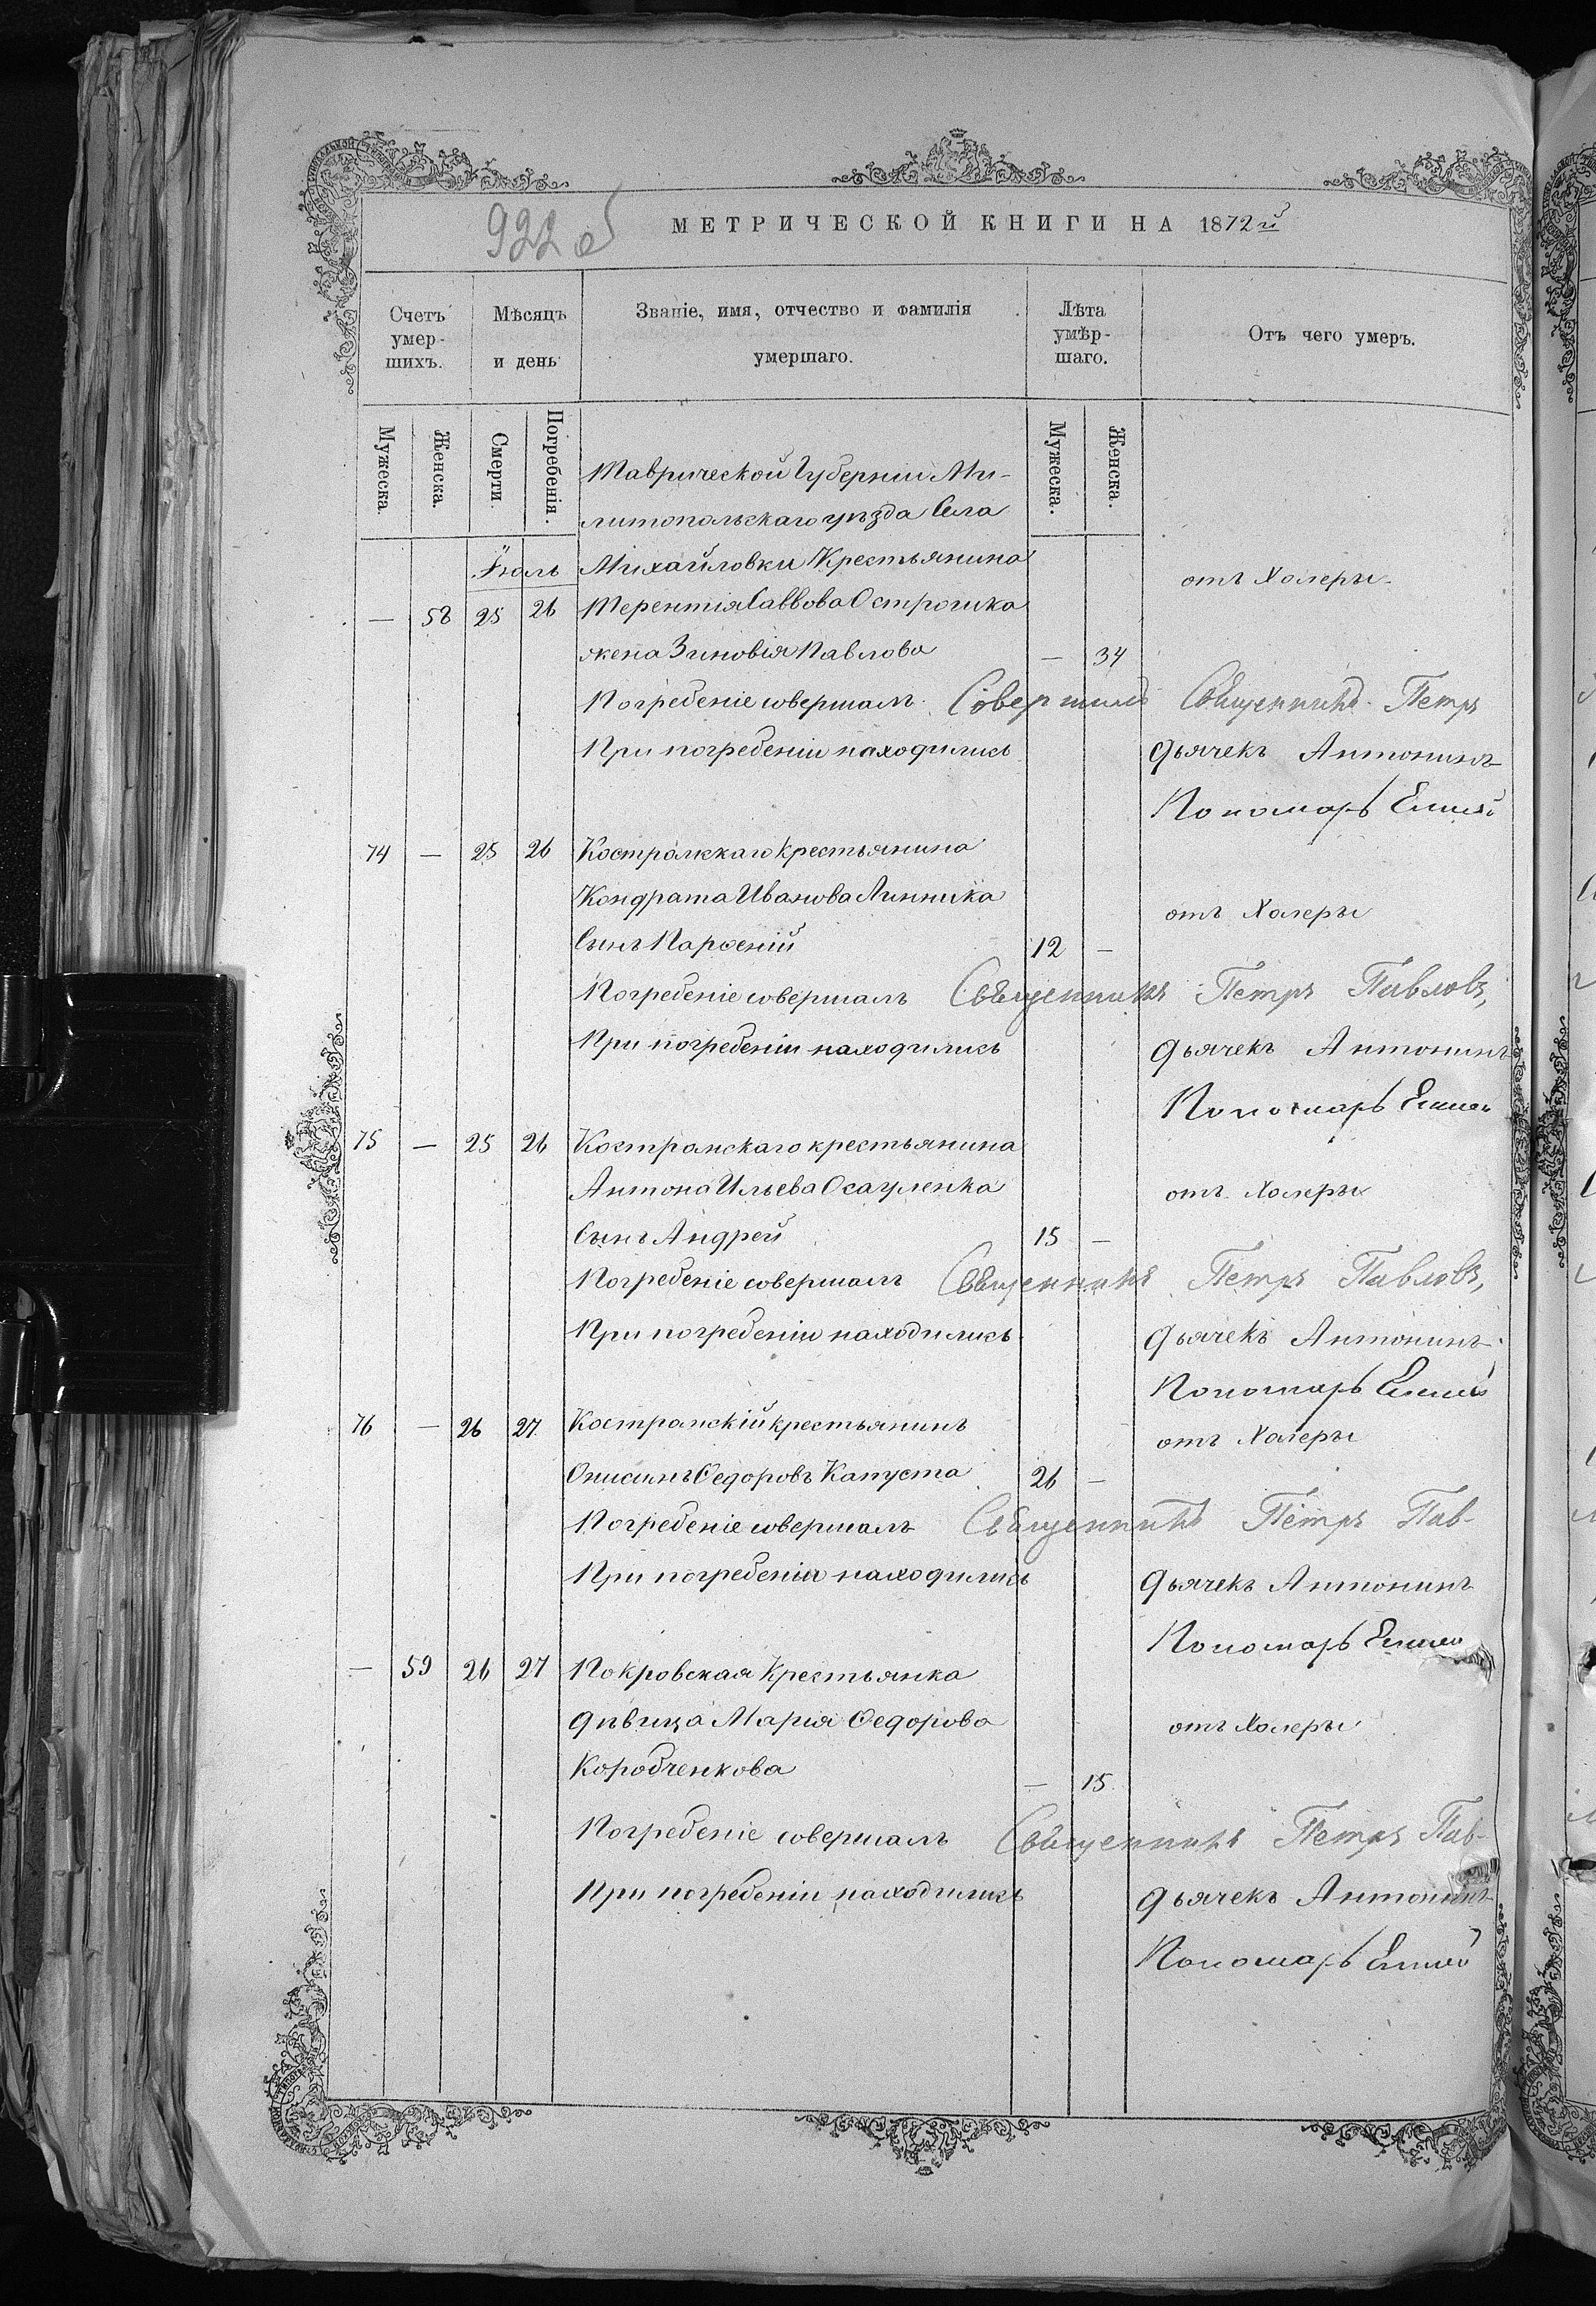 922 об
МЕТРИЧЕСКОЙ КНИГИ НА 1872й
Счетъ умер-шихъ.
Мѣсяцъ и день
Званіе, имя, отчество и фамилія умершаго.
Лѣта умѣр-шаго.
Отъ чего умеръ.
Мужеска.
Женска.
Смерти.
Погребенія.
Мужеска.
Женска.
Таврической Губерніи Ми-
литопольскаго уѣзда Села
Іюль Михайловки Крестьянина
отъ Холеры
— 58 25 26 Терентія Саввова Острошка
жена Зиновія Павлова — 34
Погребеніе совершалъ Совершилъ Священникъ Петръ
При погребеніи находились Дьячекъ Антонинъ
Пономарь
74 — 25 26 Костромскаго крестьянина
Кондрата Иванова Линника отъ Холеры
Сынъ Парѳеній 12 —
Погребеніе совершалъ Священникъ Петръ Павловъ,
При погребеніи находились Дьячекъ Антонинъ
Пономарь
75 — 25 26 Костромскаго крестьянина
Антона Ильева Осауленка отъ Холеры
Сынъ Андрей 15 —
Погребеніе совершалъ Священникъ Петръ Павловъ,
При погребеніи находились Дьячекъ Антонинъ
Пономарь
76 — 26 27 Костромскій крестьянинъ отъ Холеры
Онисимъ Ѳедоровъ Капуста 26 —
Погребеніе совершалъ Священникъ Петръ Пав-
При погребеніи находились Дьячекъ Антонинъ
Пономарь
— 59 26 27 Покровская Крестьянка
дѣвица Марія Ѳедорова отъ Холеры
Коробченкова — 15
Погребеніе совершалъ Священникъ Петръ Пав-
При погребеніи находились Дьячекъ Антонинъ
Пономарь